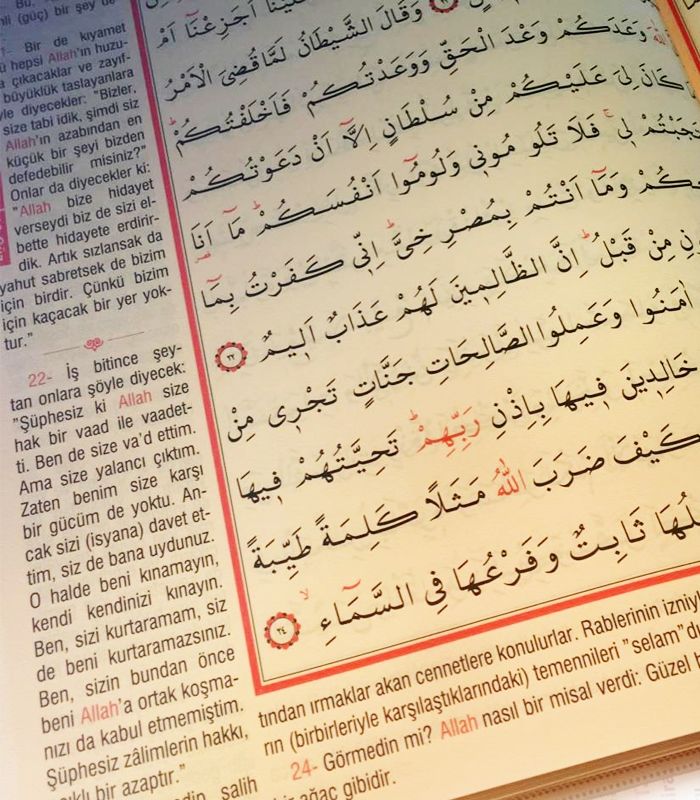 (güç) bir şey de
Bir de kıyamet
hepsi Allah'ın huzu-
çıkacaklar ve zayıf-
büyüklük taslayanlara
diyecekler: "Bizler,
size tabi idik, şimdi siz
Allah'ın azabından en
küçük bir şeyi bizden
defedebilir misiniz?"
Onlar da diyecekler ki:
"Allah bize hidayet
verseydi biz de sizi el-
bette hidayete erdirir-
dik. Artık sızlansak da
yahut sabretsek de bizim
için birdir. Çünkü bizim
için kaçacak bir yer yok-
tur."
22- İş bitince şey-
tan onlara şöyle diyecek:
"Şüphesiz ki Allah size
hak bir vaad ile vaadet-
ti. Ben de size va'd ettim.
Ama size yalancı çıktım.
Zaten benim size karşı
bir gücüm de yoktu. An-
cak sizi (isyana) davet et-
tim, siz de bana uydunuz.
O halde beni kınamayın,
kendi kendinizi kınayın.
Ben, sizi kurtaramam, siz
de beni kurtaramazsınız.
Ben, sizin bundan önce
beni Allah'a ortak koşma-
nızı da kabul etmemiştim.
Şüphesiz zâlimlerin hakkı,
bir azaptır."
salih
اَجَزِعْنَٓا اَمْ
وَقَالَ الشَّيْطَانُ لَمَّا قُضِيَ الْاَمْرُ
وَعَدَكُمْ وَعْدَ الْحَقِّ وَوَعَدْتُكُمْ فَاَخْلَفْتُكُمْۜ
كَانَ لِيَ عَلَيْكُمْ مِنْ سُلْطَانٍ اِلَّٓا اَنْ دَعَوْتُكُمْ
لٖيۚ فَلَا تَلُومُونٖي وَلُومُٓوا اَنْفُسَكُمْۜ مَٓا اَنَا۬
وَمَٓا اَنْتُمْ بِمُصْرِخِيَّۜ اِنّٖي كَفَرْتُ بِمَٓا
مِنْ قَبْلُۜ اِنَّ الظَّالِمٖينَ لَهُمْ عَذَابٌ اَلٖيمٌ ﴿٢٢﴾
اٰمَنُوا وَعَمِلُوا الصَّالِحَاتِ جَنَّاتٍ تَجْرٖي مِنْ
خَالِدٖينَ فٖيهَا بِاِذْنِ رَبِّهِمْۜ تَحِيَّتُهُمْ فٖيهَا
كَيْفَ ضَرَبَ اللّٰهُ مَثَلًا كَلِمَةً طَيِّبَةً
ثَابِتٌ وَفَرْعُهَا فِي السَّمَٓاءِۙ ﴿٢٤﴾
tından ırmaklar akan cennetlere konulurlar. Rablerinin izniyl
rın (birbirleriyle karşılaştıklarındaki) temennileri "selam"du
24- Görmedin mi? Allah nasıl bir misal verdi: Güzel
bir ağaç gibidir.